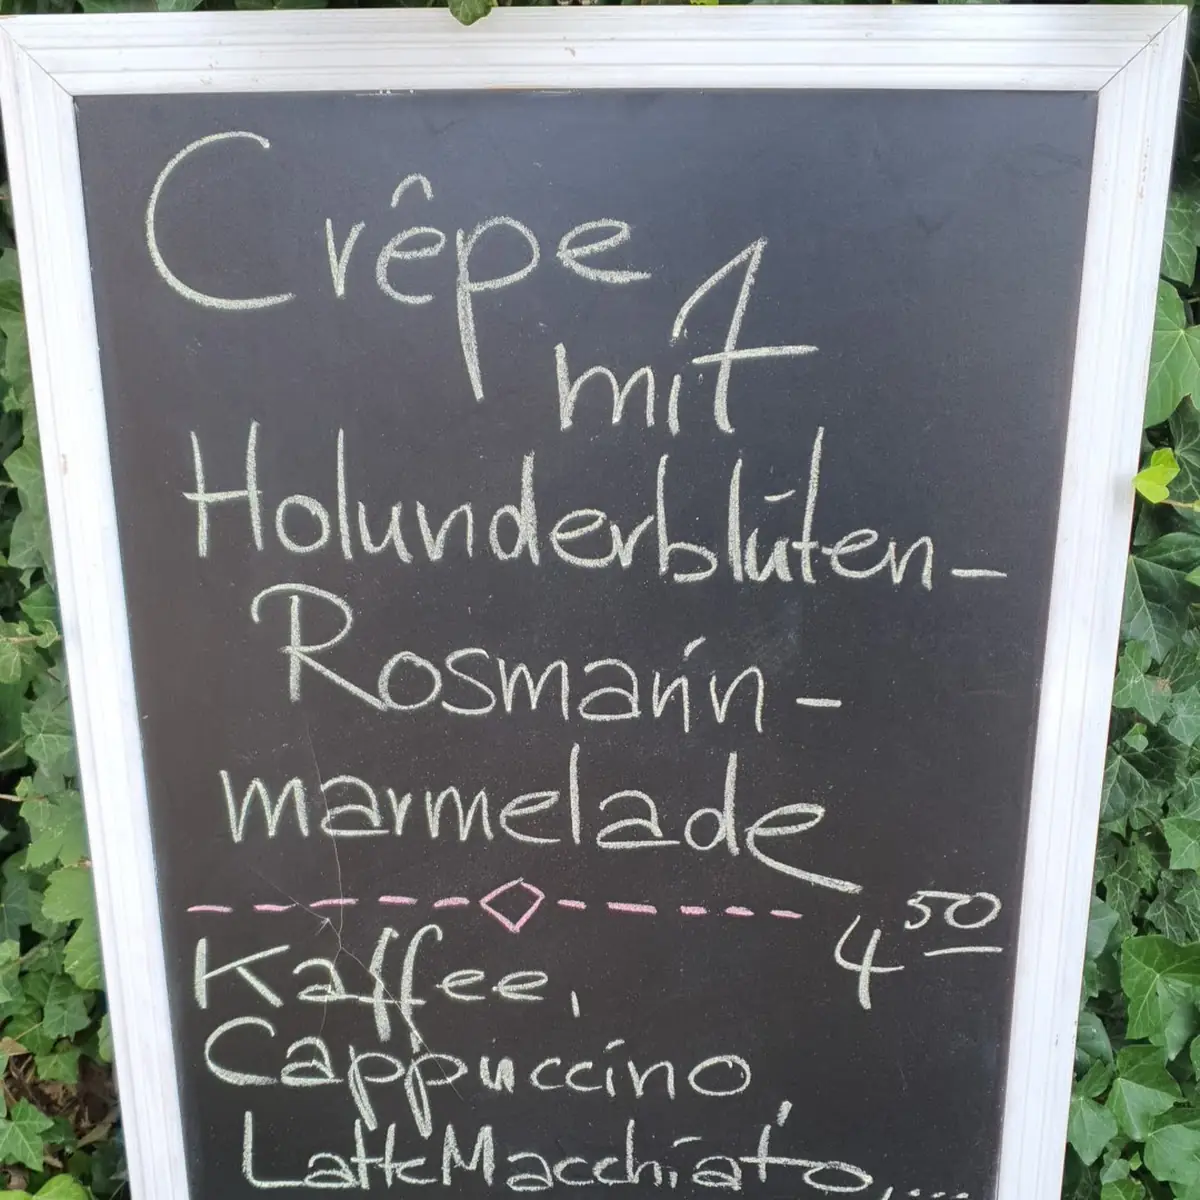 Crêpe
mit
Holunderblüten-
Rosmarin-
marmelade
4 50
Kaffee,
Cappuccino,
Latte Macchiato,....